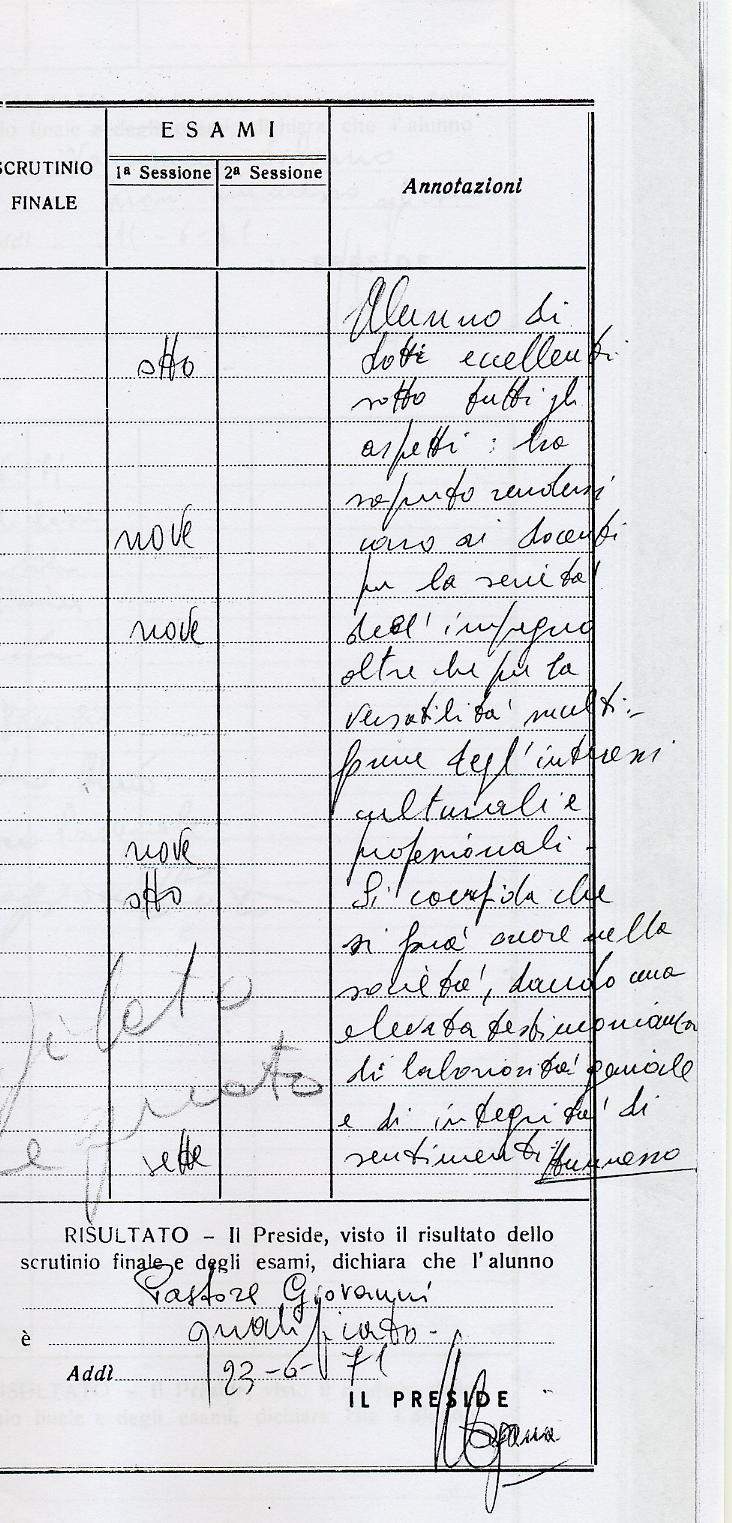 SCRUTINIO
FINALE
ESAMI
1ª Sessione
2ª Sessione
Annotazioni
otto
nove
nove
nove
otto
sette
Alunno di
doti eccellenti
sotto tutti gli
aspetti: ha
saputo rendersi
caro ai docenti
per la serietà
dell'impegno
oltre che per la
versatilità multi-
forme degl'interessi
culturali e
professionali -
Si confida che
si farà onore nella
società, dando una
elevata testimonianza
di laboriosità geniale
e di integrità di
sentimenti.
RISULTATO – Il Preside, visto il risultato dello
scrutinio finale e degli esami, dichiara che l'alunno
Pastore Giovanni
è qualificato -
Addì 23-6-71
IL PRESIDE